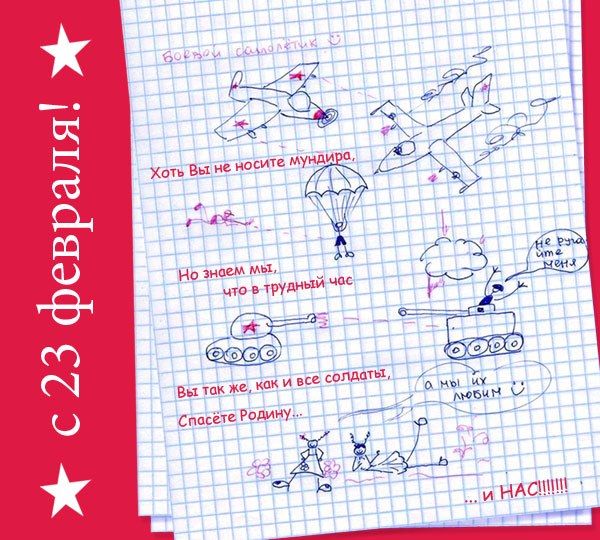 с 23 февраля!
Боевой самолётик
Хоть Вы не носите мундира,
Но знаем мы,
что в трудный час
не руга
йте
меня
Вы так же, как и все солдаты,
Спасёте Родину...
а мы их
любим
... и НАС!!!!!!!